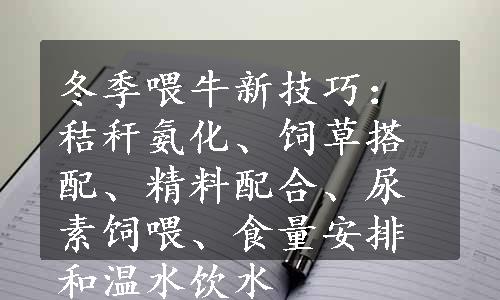 冬季喂牛新技巧：
秸秆氨化、饲草搭
配、精料配合、尿
素饲喂、食量安排
和温水饮水